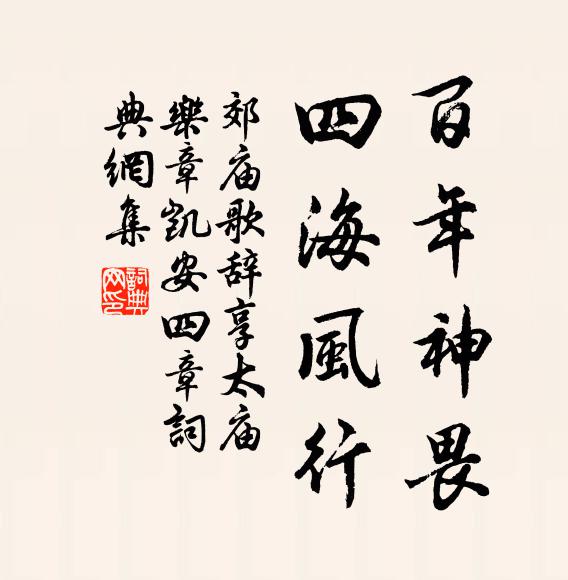 百年神畏
四海風行
郊庙歌辞享太庙
樂章凱安四章詞
典網集
詞典
网印